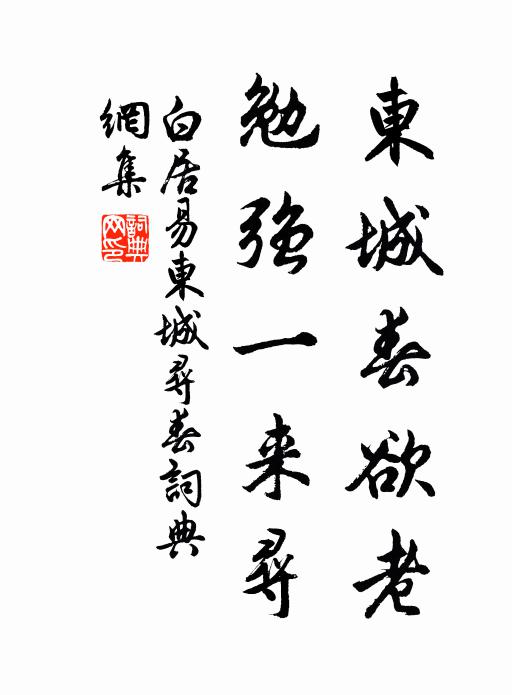 東城春欲老
勉強一来尋
白居易東城尋春詞典
網集
詞典
网印